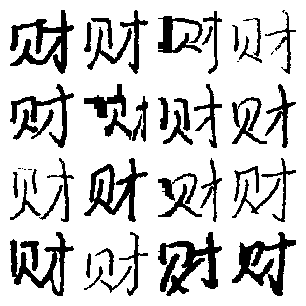 财财财财
财财财财
财财财财
财财财财